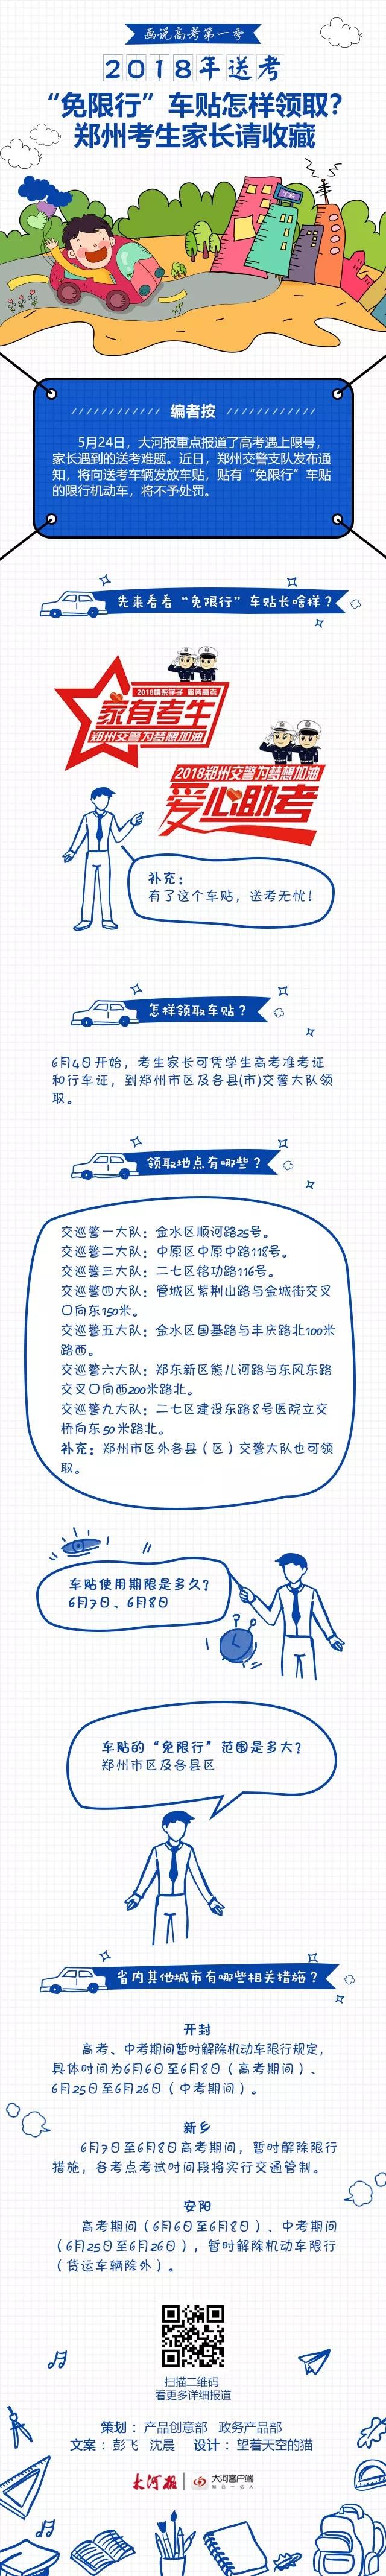 画说高考第一季
2018年送考
“免限行”车贴怎样领取？
郑州考生家长请收藏
编者按
5月24日，大河报重点报道了高考遇上限号，
家长遇到的送考难题。近日，郑州交警支队发布通
知，将向送考车辆发放车贴，贴有“免限行”车贴
的限行机动车，将不予处罚。
先来看看“免限行”车贴长啥样？
2018情系学子 服务高考
家有考生
郑州交警为梦想加油
2018郑州交警为梦想加油
爱心助考
补充：
有了这个车贴，送考无忧！
怎样领取车贴？
6月4日开始，考生家长可凭学生高考准考证
和行车证，到郑州市区及各县(市)交警大队领
取。
领取地点有哪些？
交巡警一大队：金水区顺河路25号。
交巡警二大队：中原区中原中路118号。
交巡警三大队：二七区铭功路116号。
交巡警四大队：管城区紫荆山路与金城街交叉
口向东150米。
交巡警五大队：金水区国基路与丰庆路北100米
路西。
交巡警六大队：郑东新区熊儿河路与东风东路
交叉口向西200米路北。
交巡警九大队：二七区建设东路8号医院立交
桥向东50米路北。
补充：郑州市区外各县（区）交警大队也可领
取。
车贴使用期限是多久？
6月7日、6月8日
车贴的“免限行”范围是多大？
郑州市区及各县区
省内其他城市有哪些相关措施？
开封
高考、中考期间暂时解除机动车限行规定，
具体时间为6月6日至6月8日（高考期间）、
6月25日至6月26日（中考期间）。
新乡
6月7日至6月8日高考期间，暂时解除限行
措施，各考点考试时间段将实行交通管制。
安阳
高考期间（6月6日至6月8日）、中考期间
（6月25日至6月26日），暂时解除机动车限行
（货运车辆除外）。
扫描二维码
看更多详细报道
策划： 产品创意部 政务产品部
文案： 彭飞 沈晨 设计： 望着天空的猫
大河报 大河客户端